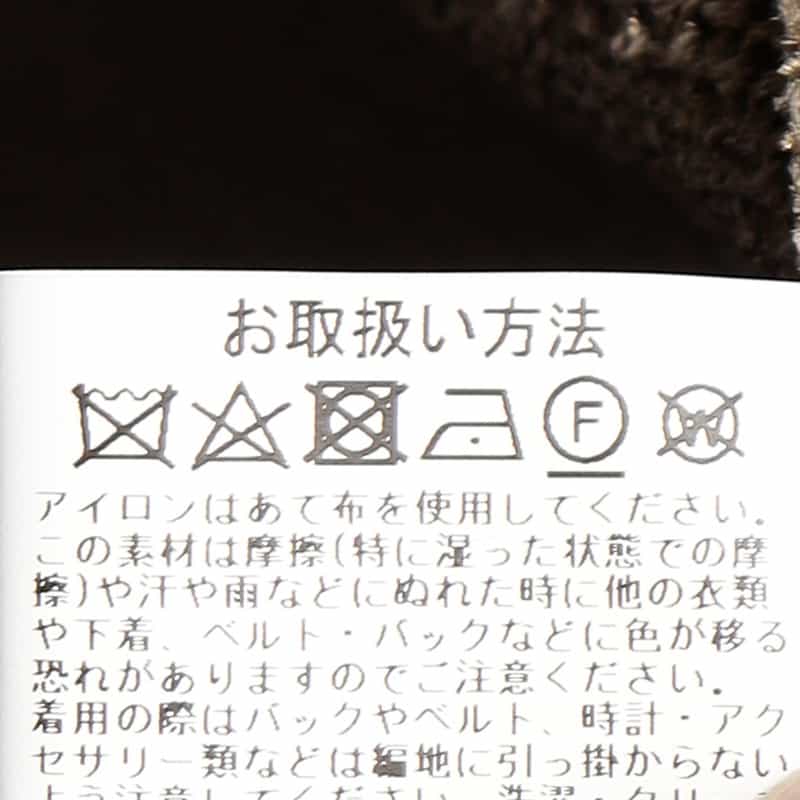 お取扱い方法
F
W
アイロンはあて布を使用してください。
この素材は摩擦(特に湿った状態での摩
擦)や汗や雨などにぬれた時に他の衣類
や下着、ベルト・バックなどに色が移る
恐れがありますのでご注意ください。
着用の際はバックやベルト、時計・アク
セサリー類などは編地に引っ掛からない
よう注意してください。洗濯・クリー